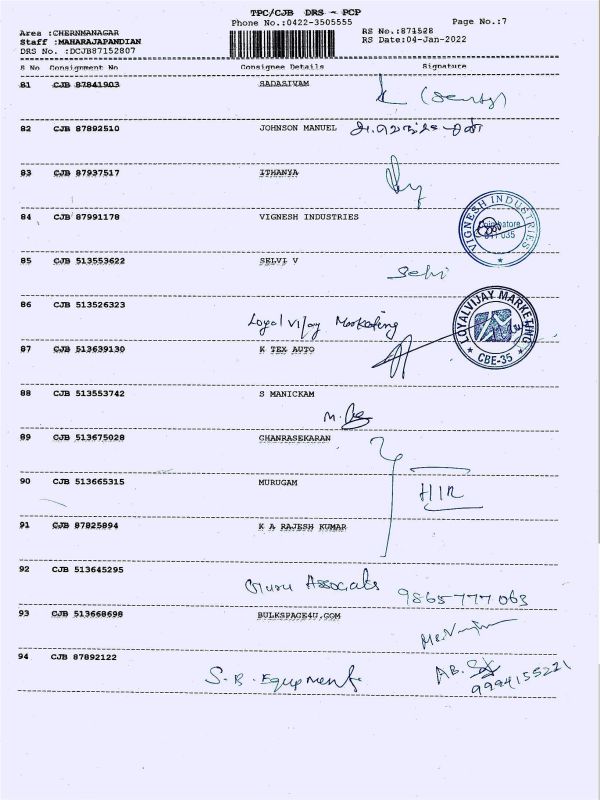 TPC/CJB DRS - PCP
Phone No.:0422-3505555
Page No.:7
Area :CHERNMANAGAR
Staff :MAHARAJAPANDIAN
DRS No. :DCJB87152807
RS No.:871528
RS Date:04-Jan-2022
S No Consignment No Consignee Details Signature
81 CJB 87841903 SADASIVAM
82 CJB 87892510 JOHNSON MANUEL
83 CJB 87937517 ITHANYA
84 CJB 87991178 VIGNESH INDUSTRIES
VIGNESH INDUSTRIES
Coimbatore
641 035
85 CJB 513553622 SELVI V
Selvi
86 CJB 513526323
Loyal Vijay Marketing
LOYALVIJAY MARKETING
CBE-35
87 CJB 513639130 K TEX AUTO
88 CJB 513553742 S MANICKAM
89 CJB 513675028 CHANRASEKARAN
90 CJB 513665315 MURUGAM
91 CJB 87825894 K A RAJESH KUMAR
92 CJB 513645295
Guru Associats 9865777063
93 CJB 513668698 BULKSPACE4U.COM
94 CJB 87892122
S.B. Equpment
9994155221